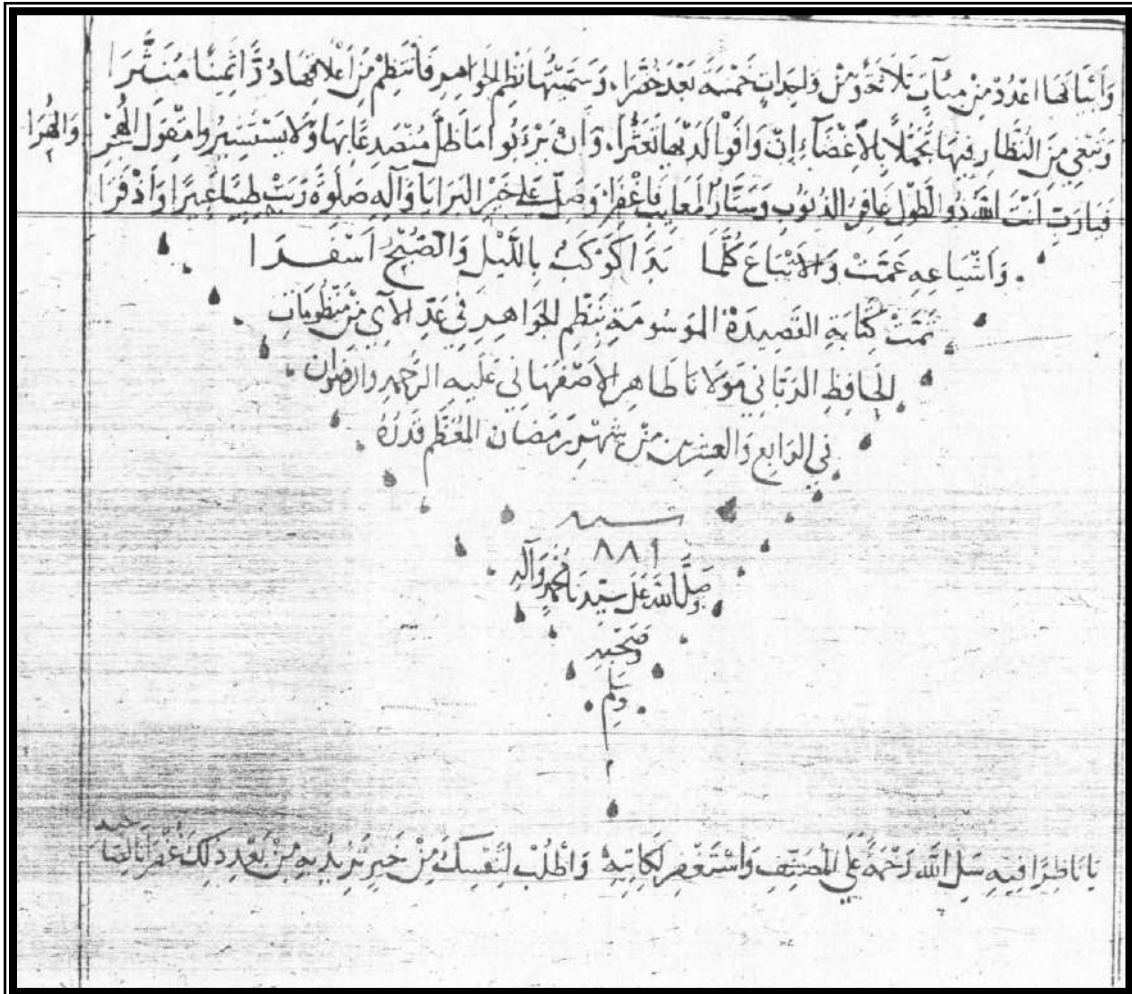 وَأَبْيَاتُهَا اعْدُدْ مِنْ مِئَاتٍ ثَلَاثَةً وَمِنْ وَاحِدَاتٍ خَمْسَةً بَعْدَ وَسَمَّيْتُهَا نَظْمَ الْجَوَاهِرِ فَانْتَظِمْ مِنْ دُرًّا ثَمِينًا مُنَثَّرَا
وَنَبْغِي مِنَ النُّظَّارِ فِيهَا تَجَمُّلًا بِالْإِغْضَاءِ إِنْ وَافَوْا لَدَيْهَا تَعَثُّرَا وَأَنْ مَا ظَلَّ وَلَا وَالْهُرَا
فَيَا رَبِّ أَنْتَ اللَّهُ ذُو الطَّوْلِ غَافِرُ الذُّنُوبِ وَسَتَّارُ الْمَعَايِبِ فَاغْفِرَا وَصَلِّ عَلَى خَيْرِ الْبَرَايَا وَآلِهِ صَلٰوةً رَبَتْ طِيبًا عَبِيرًا وَأَذْفَرَا
وَأَشْيَاعِهِ عَمَّتْ وَالْأَتْبَاعَ كُلَّمَا بَدَا كَوْكَبٌ بِاللَّيْلِ وَالصُّبْحُ أَسْفَرَا
تَمَّتْ كِتَابَةِ الْقَصِيدَةِ الْمَوْسُومَةِ بِنَظْمِ الْجَوَاهِرِ فِي عَدِّ الْآيِ مِنْ مَنْظُومَاتِ
الْحَافِظِ الرَّبَّانِي مَوْلَانَا طَاهِرِ الْأَصْفَهَانِي عَلَيْهِ الرَّحْمَةِ وَالرِّضْوَانِ
فِي الرَّابِعِ وَالْعِشْرِينَ مِنْ شَهْرِ رَمَضَانَ الْمُعَظَّمِ قَدْرُهُ
سنه
٨٨٩
وَصَلَّى اللَّهُ عَلَى سَيِّدِنَا مُحَمَّدٍ وَآلِهِ
وَصَحْبِهِ
وَسَلِّمْ
م
يَا نَاظِرًا فِيهِ سَلِ اللَّهَ رَحْمَةً عَلَى الْمُصَنِّفِ وَاسْتَغْفِرْ لِكَاتِبِهِ وَاطْلُبْ لِنَفْسِكَ مِنْ خَيْرٍ تُرِيدُ بِهِ مِنْ بَعْدِ ذٰلِكَ غُفْرَانًا لِصَاحِبِهِ